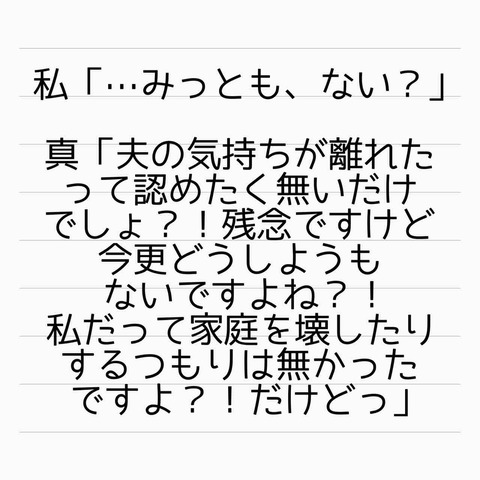 私「…みっとも、ない？」
真「夫の気持ちが離れた
って認めたく無いだけ
でしょ？！残念ですけど
今更どうしようも
ないですよね？！
私だって家庭を壊したり
するつもりは無かった
ですよ？！だけどっ」